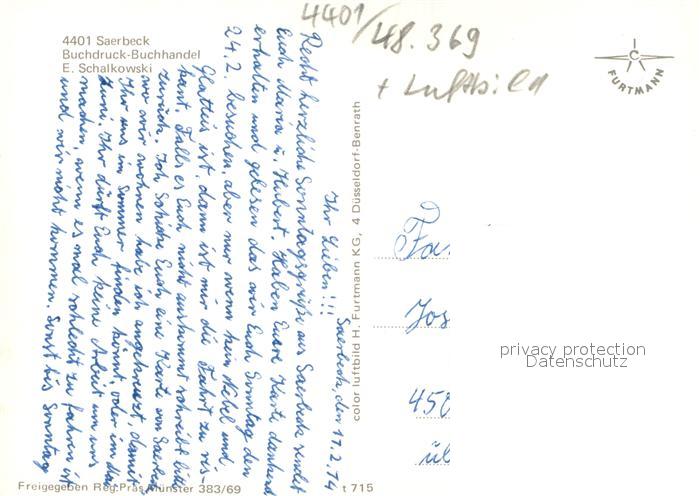 4401/48.369
+ Luftbild
4401 Saerbeck
Buchdruck-Buchhandel
E. Schalkowski
FURTMANN
Saerbeck, den 17.2.74
Ihr Lieben!!!
Recht herzliche Sonntagsgrüße aus Saerbeck sendet
Euch Maria u. Hubert. Haben Eure Karte dankend
erhalten und gelesen das wir Euch Sonntag den
24.2. besuchen, aber nur wenn kein Nebel und
Glatteis ist, dann ist mir die Fahrt zu ris-
kant. Falls es Euch nicht auskommt schreibt bitte
zurück. Ich schicke Euch eine Karte von Saerbeck
wo wir wohnen habe ich angekreuzt, damit
Ihr uns im Sommer finden könnt, oder im Mai
Juni. Ihr dürft Euch keine Arbeit um uns
machen, wenn es mal schlecht zu fahren ist
und wir nicht kommen. Sonst bis Sonntag
color luftbild H. Furtmann KG, 4 Düsseldorf-Benrath
Fa
Jos
450
üb
privacy protection
Datenschutz
Freigegeben Reg.Präs.Münster 383/69
t 715